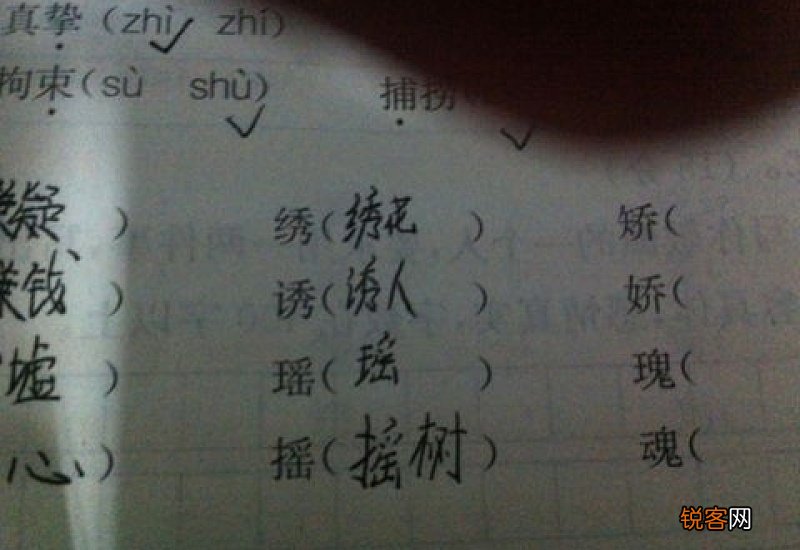 真挚（zhì zhí）
拘束（sù shù） 捕捞
嫌疑） 绣（绣花） 矫（
赚钱） 诱（诱人） 娇（
墟） 瑶（瑶） 瑰（
心） 摇（摇树） 魂（
锐客网